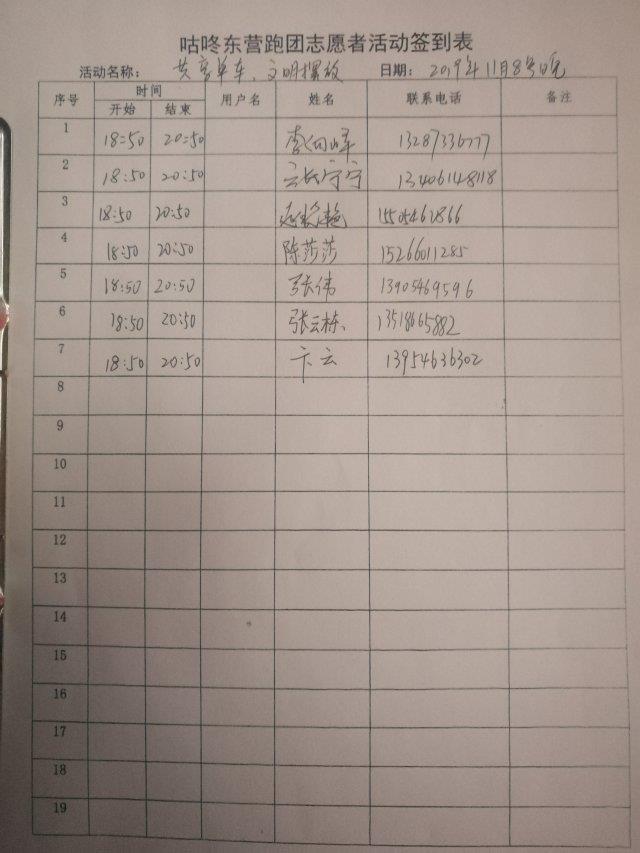 咕咚东营跑团志愿者活动签到表
活动名称: 共享单车、文明摆放 日期: 2019年11月8号晚
序号 时间 用户名 姓名 联系电话 备注
开始 结束
1 18:50 20:50 李向峰 13287336777
2 18:50 20:50 13406148118
3 18:50 20:50
4 18:50 20:50 陈莎莎 15266011285
5 18:50 20:50 张伟 13905469596
6 18:50 20:50 张云栋 13518665882
7 18:50 20:50 卞云 13954636302
8
9
10
11
12
13
14
15
16
17
18
19